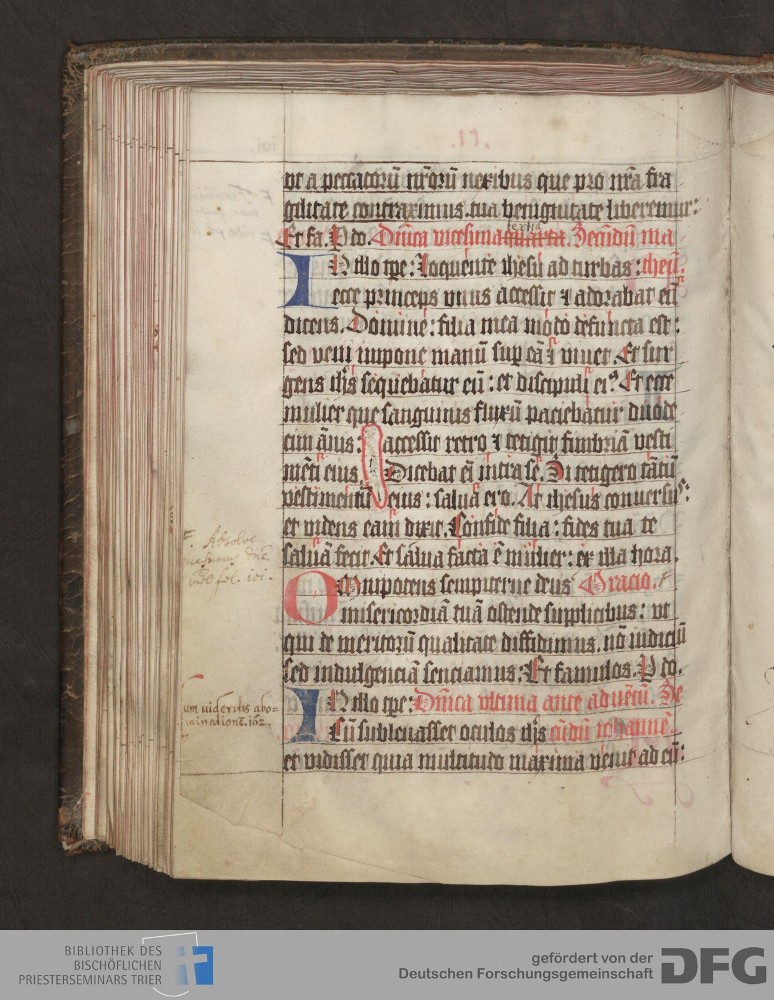 vt a peccatorū nr̄orū nexibus que pro nr̄a fra
gilitate contraximus. tua benignitate liberemur:
tertia
Et fa. P to. Dn̄ica vicesima quarta. Secūdū ma
IN illo tp̄e: Loquente ihesu ad turbas: theū.
ecce princeps vnus accessit ⁊ adorabat eū
dicens. Domine: filia mea modo defuncta est:
sed veni impone manū sup eā ⁊ viuet. Et sur
gens ih̄s sequebatur eū: et discipuli eiꝰ. Et ecce
mulier que sanguinis fluxū paciebatur duode
cim ānis: accessit retro ⁊ tetigit fimbriā vesti
mēti eius. Dicebat ēi intra se. Si tetigero tātū
vestimentū eius: salua ero. At ihesus conuersꝰ:
et videns eam dixit. Confide filia: fides tua te
saluā fecit. Et salua facta ē mulier: ex illa hora.
OMnipotens sempiterne deus Oracio.
misericordiā tuā ostende supplicibus: vt
qui de meritorū qualitate diffidimus. nō iudiciū
sed indulgenciā senciamus: Et famulos. P to.
IN illo tp̄e: Dn̄ica vltima ante aduētū. Se
Cū subleuasset oculos ih̄s cūdū iohannē.
et vidisset quia multitudo maxima venit ad eū:
Absolve
fol. 101.
um videritis abo=
minationē. 102.
BIBLIOTHEK DES
BISCHÖFLICHEN
PRIESTERSEMINARS TRIER
gefördert von der
Deutschen Forschungsgemeinschaft
DFG